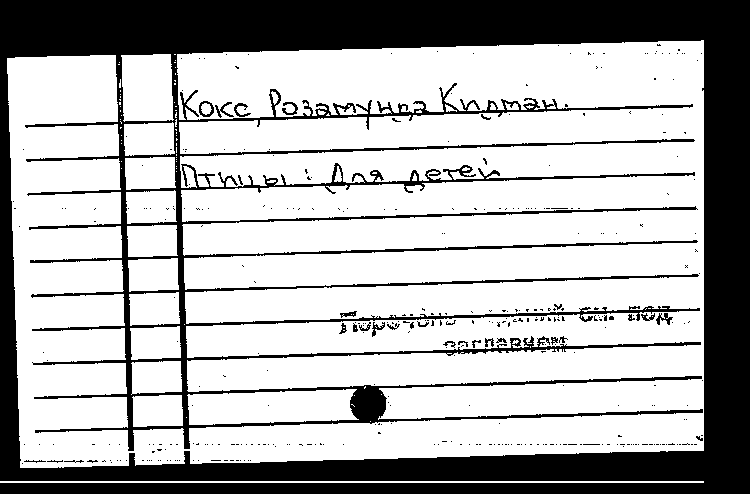 Кокс, Розамунда Кидман.
Птицы: Для детей
Перечень изданий см. под
заглавием